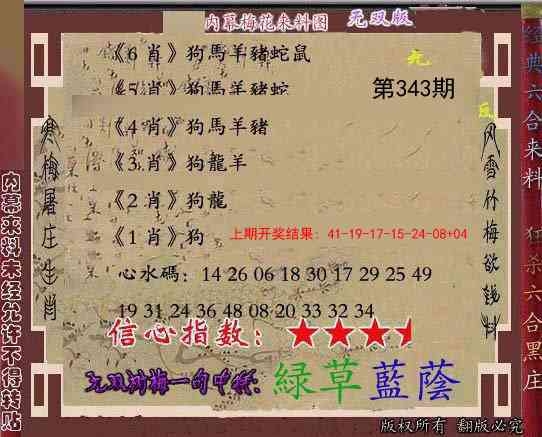 内幕梅花来料图 无双版
《6 肖》狗馬羊豬蛇鼠
《5 肖》狗馬羊豬蛇
第343期
《4 肖》狗馬羊豬
《3 肖》狗龍羊
《2 肖》狗龍
《1 肖》狗
上期开奖结果：41-19-17-15-24-08+04
心水碼：14 26 06 18 30 17 29 25 49
19 31 24 36 48 08 20 33 32 34
信心指数：
綠草藍蔭
版权所有 翻版必究
寒梅屠庄生肖
风雪竹梅欲钱料
内幕来料未经允许不得转贴
经典六合来料
狂杀六合黑庄